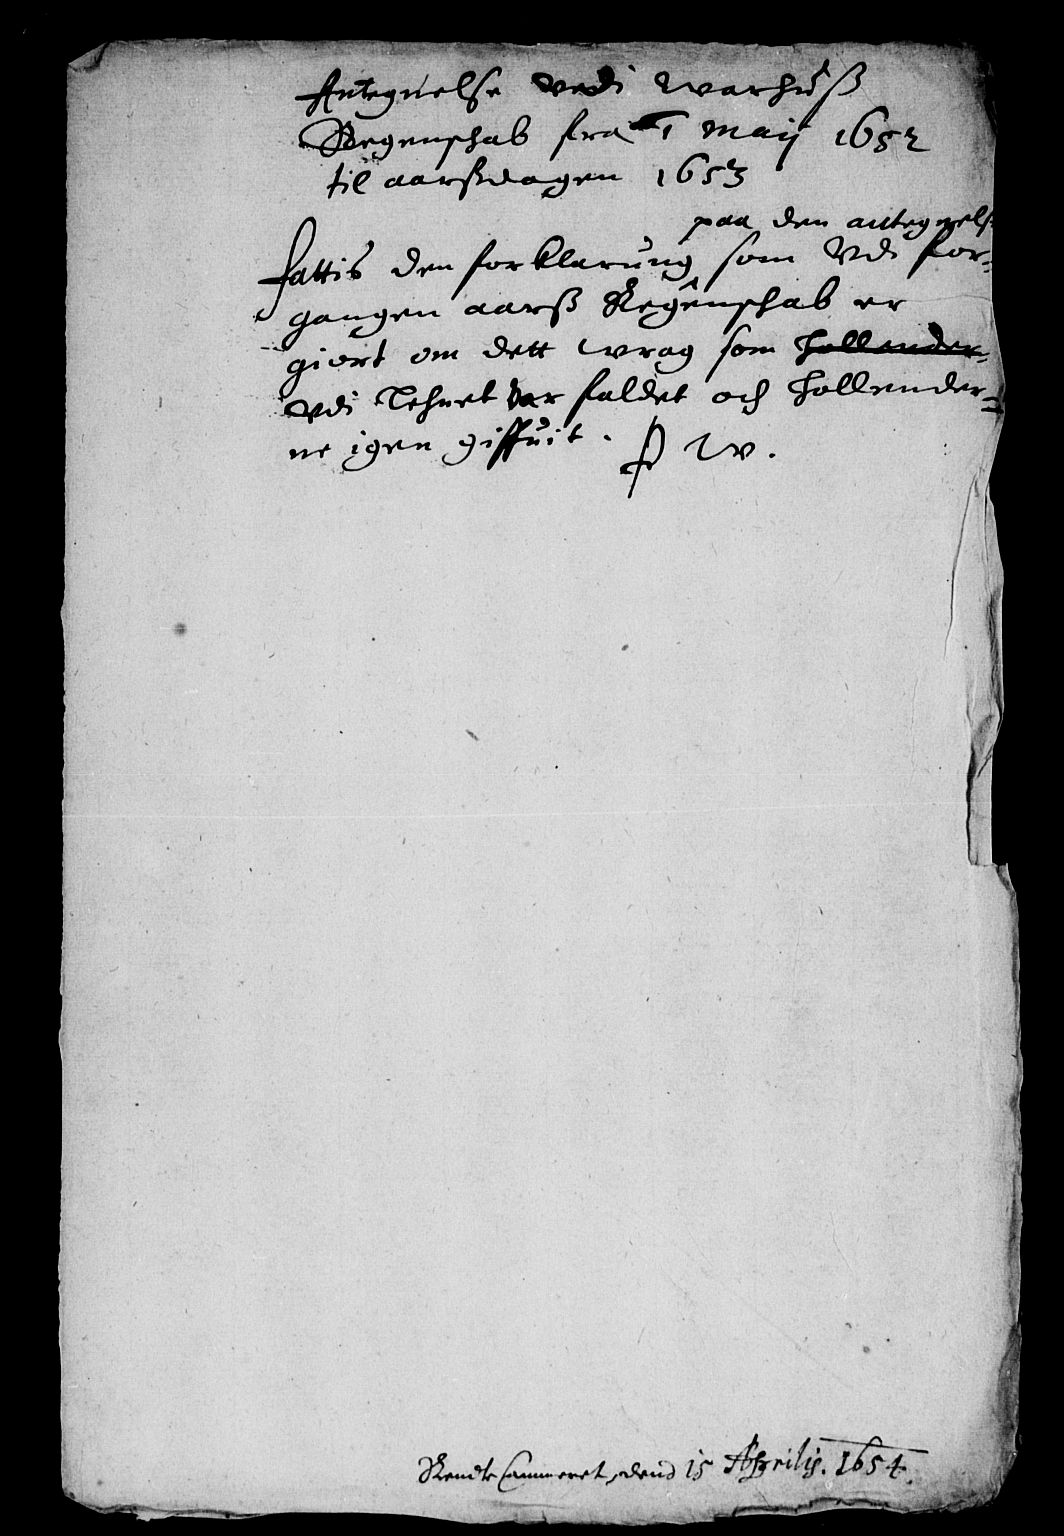 Antegnelse vedi Warhuuß
Regenschab fra 1 Maij 1652
til aarsdagen 1653
paa den antegnels
fattis den forklarung som Udi for-
gangen aarß Regenschab er
giort om dett wrag som hollender-
udi Lehnet var faldet och hollender-
ne igen giffuit. P W.
Rendte Cammeret, dend 15 Aprilis. 1654.